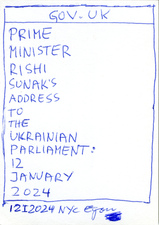 GOV.UK
PRIME
MINISTER
RISHI
SUNAK'S
ADDRESS
TO
THE
UKRAINIAN
PARLIAMENT:
12
JANUARY
2024
12I2024 NYC